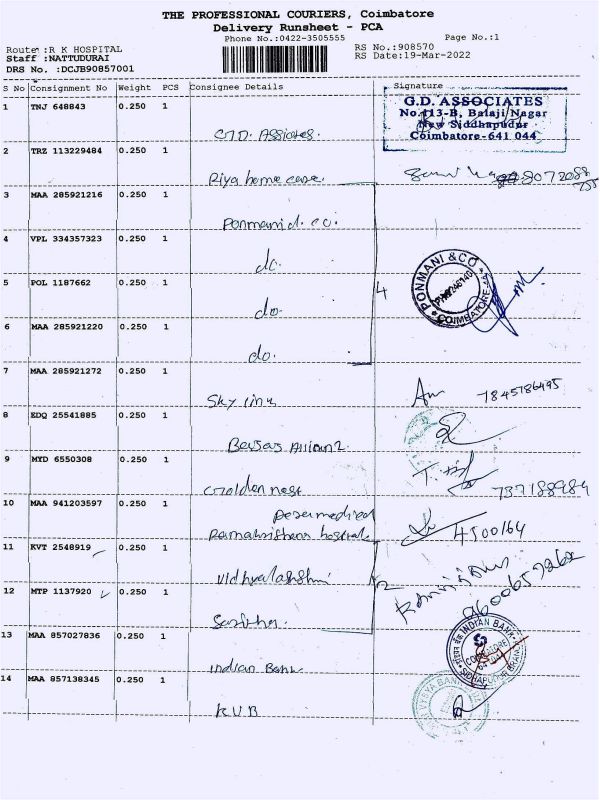 THE PROFESSIONAL COURIERS, Coimbatore
Delivery Runsheet - PCA
Phone No.:0422-3505555
Page No.:1
Route :R K HOSPITAL
RS No.:908570
Staff :NATTUDURAI
RS Date:19-Mar-2022
DRS No. :DCJB90857001
S No Consignment No Weight PCS Consignee Details Signature
1 TNJ 648843 0.250 1
G.D. ASSOCIATES
No.113-B, Balaji Nagar
New Siddhapudur
Coimbatore-641 044
G.D. Assiates.
2 TRZ 113229484 0.250 1
Riya home care.
3 MAA 285921216 0.250 1
Ponmani d. co.
4 VPL 334357323 0.250 1
do.
5 POL 1187662 0.250 1
4
PONMANI & CO
COIMBATORE
do.
6 MAA 285921220 0.250 1
do.
7 MAA 285921272 0.250 1
Sky link
7845786495
8 EDQ 25541885 0.250 1
9 MYD 6550308 0.250 1
Golden nest
737188984
10 MAA 941203597 0.250 1
4500164
11 KVT 2548919 0.250 1
Vidhyalakshmi
2
12 MTP 1137920 0.250 1
9600657262
13 MAA 857027836 0.250 1
INDIAN BANK
COIMBATORE
SIDHAPUDUR BRANCH
Indian Bank
14 MAA 857138345 0.250 1
VYSYA BANK
K.V.B